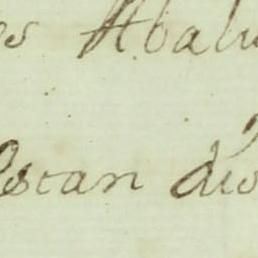 es Abalu
estan dio